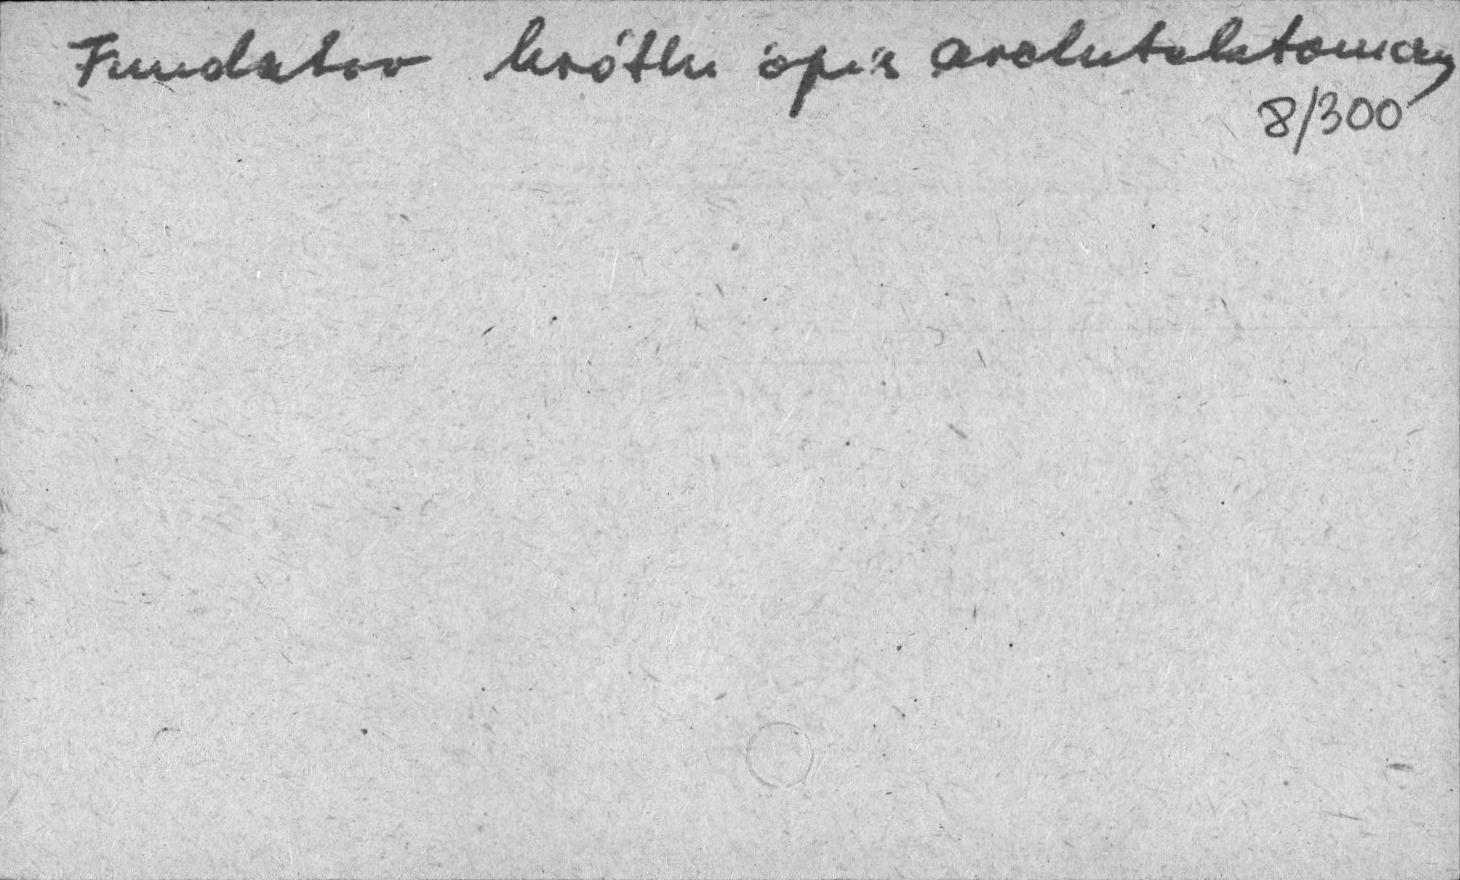 Fundator krótki opis architektoniczny
8/300